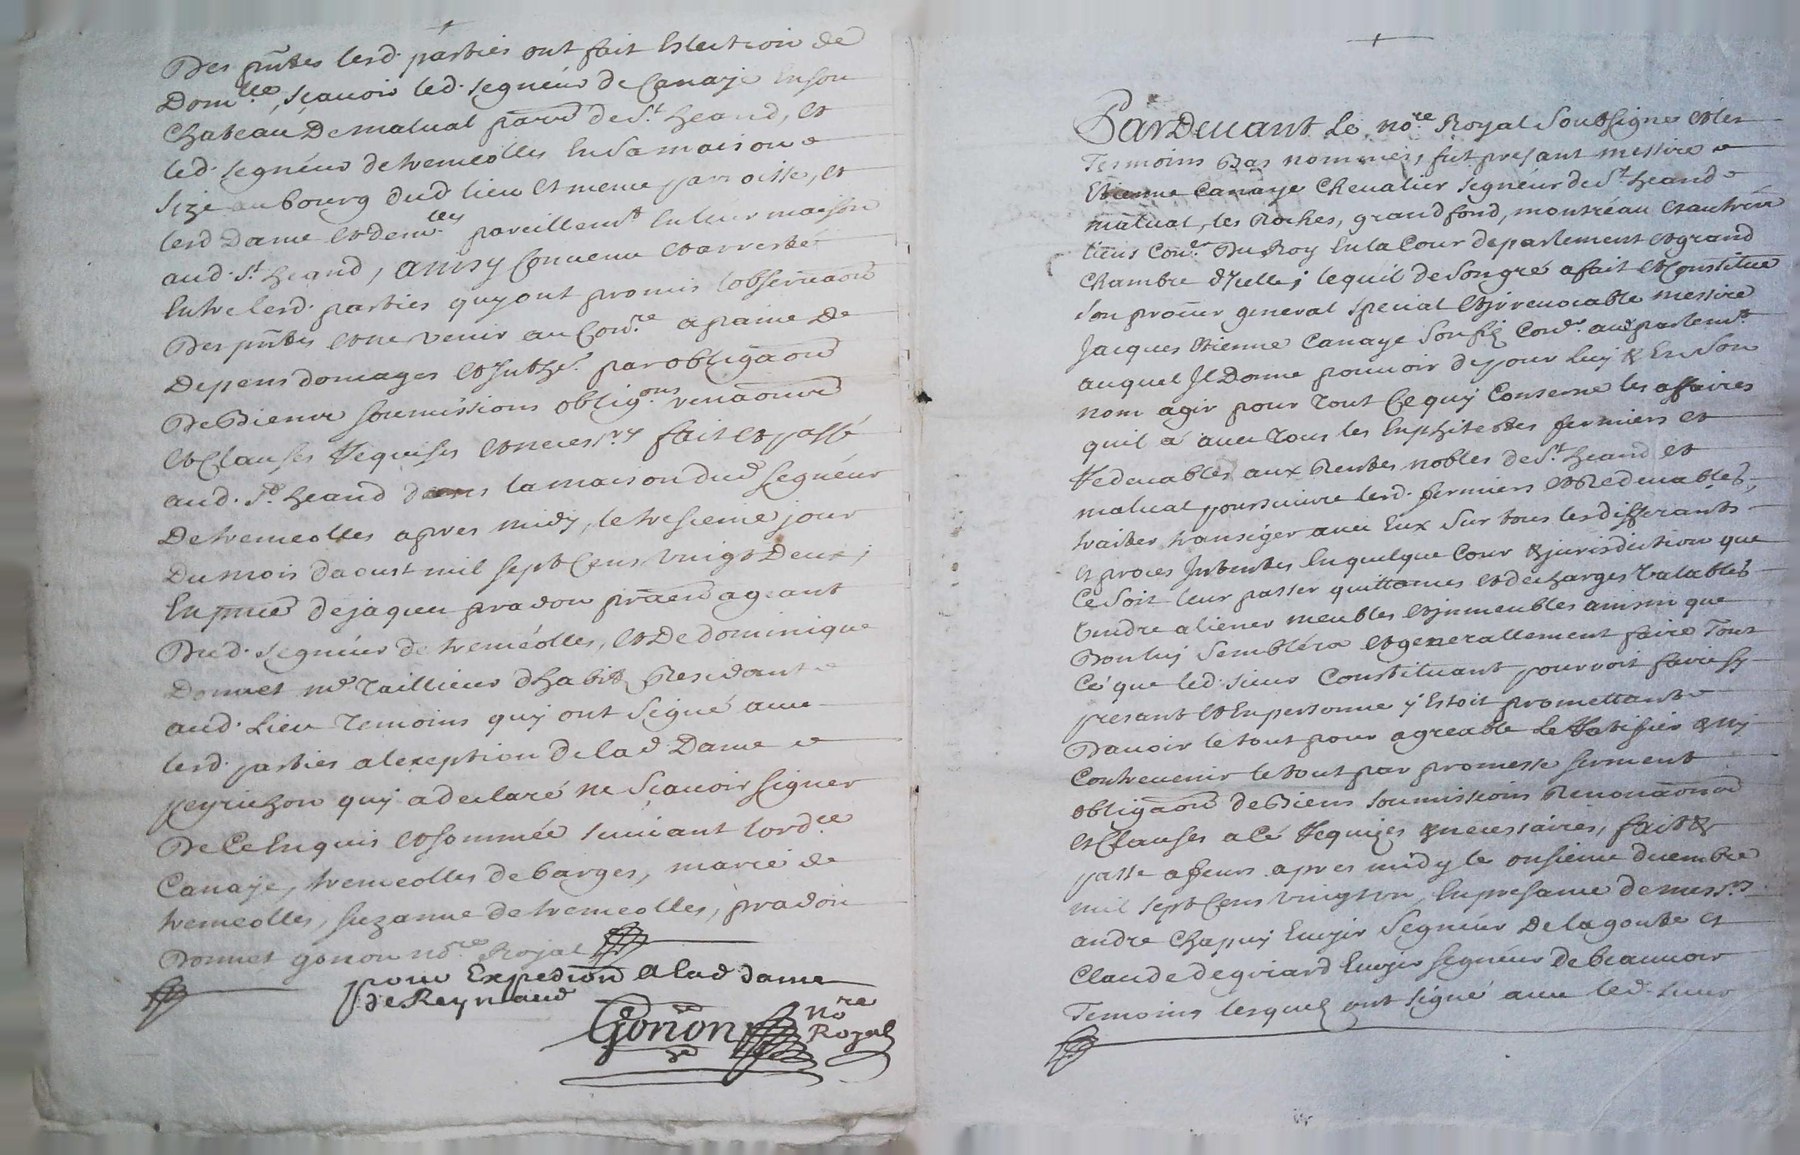 Des pñtes lesd. parties ont fait Election de
Domlle, sçauoir led. segnéur de Canaye En son
Chateau De malual parrd de St. heand, et
led. segnéur de tremeolles En Sa maison
size au bourg dud. lieu Et meme parroisse, et
lesd Dame et demlles pareillemt En leur maison
aud. St. heand, ainsy Conuenu et arresté
Entre lesd. parties quy ont promis lobseruaon
Des pñtes et ne venir au Conre a paine De
Depens domages et Inthz. par obligaon
De Biens soumissions obligons renaon
et Clauses Requises et necesrys fait et passé
aud. St. heand dans la maison dud segnéur
De tremeolles apres midy, le tresieme jour
Du mois daoust mil sept Cens vingt Deux,
En pñce de jaques pradou ageant
Dud. segnéur de treméolles, et De dominique
Donnet md Taillieur dhabit Residant
aud. Lieu Temoins quy ont Signé auec
lesd. parties alexeption De lad. Dame
peyrichon quy a declaré ne Scauoir signer
De Ce Enquis et sommée suiuant lordce
Canaye, tremeolles de barges, marie de
tremeolles, suzanne de tremeolles, pradou
Donnet gonon nore Royal
pour Expedion A lad dame
de Reymaud
Gonon nore
Royal
Pardeuant Le nore. Royal Soubsigné et les
Temoins Bas nommés, fut presant messire
Etienne Canaye Cheualier segnéur de St. heand
malual, les Roches, grandfond, montréau et autres
lieus Coner. Du Roy En la Cour de parlement et grand
Chambre dIcelle; lequél de Son gré a fait et Constitué
Son procur general special et irreuocable messire
Jacques Etienne Canaye Son fiz Coner. aud parlemt.
auquel Il Donne pouuoir de pour luy & En Son
nom agir pour Tout Ce quy Conserne les affaires
quil a auec Tous les Enphiteotes fermiers et
Redeuables aux Rentes nobles de St. heand et
malual poursuiure lesd. fermiers et Redeuables,
traiter transiger auec Eux sur tous les differants
et proces Intentés En quelque Cour & jurisdiction que
Ce Soit leur passer quittances et decharges valables
vendre aliener meubles et inmeubles ainsin que
Bon luy Semblera et generallement faire Tout
Cé que led. sieur Constituant pourroit faire sy
presant et En personne y Estoit promettant
Dauoir le tout pour agreable Le Ratifier & ny
Contreuenir le tout par promesse serment
obligaon de Biens soumissions Renonaon
et Clauses a Cé Requizes & necessaires, fait &
passé a feurs apres midy le onsieme decembre
mil sept Cens vingt un, En presance de messrs.
andré Chapuy Ecuyer Segnéur De la goutte et
Claude de griard Ecuyer segnéur De Beauuoir
Temoins lesquels ont signé auec led. sieur